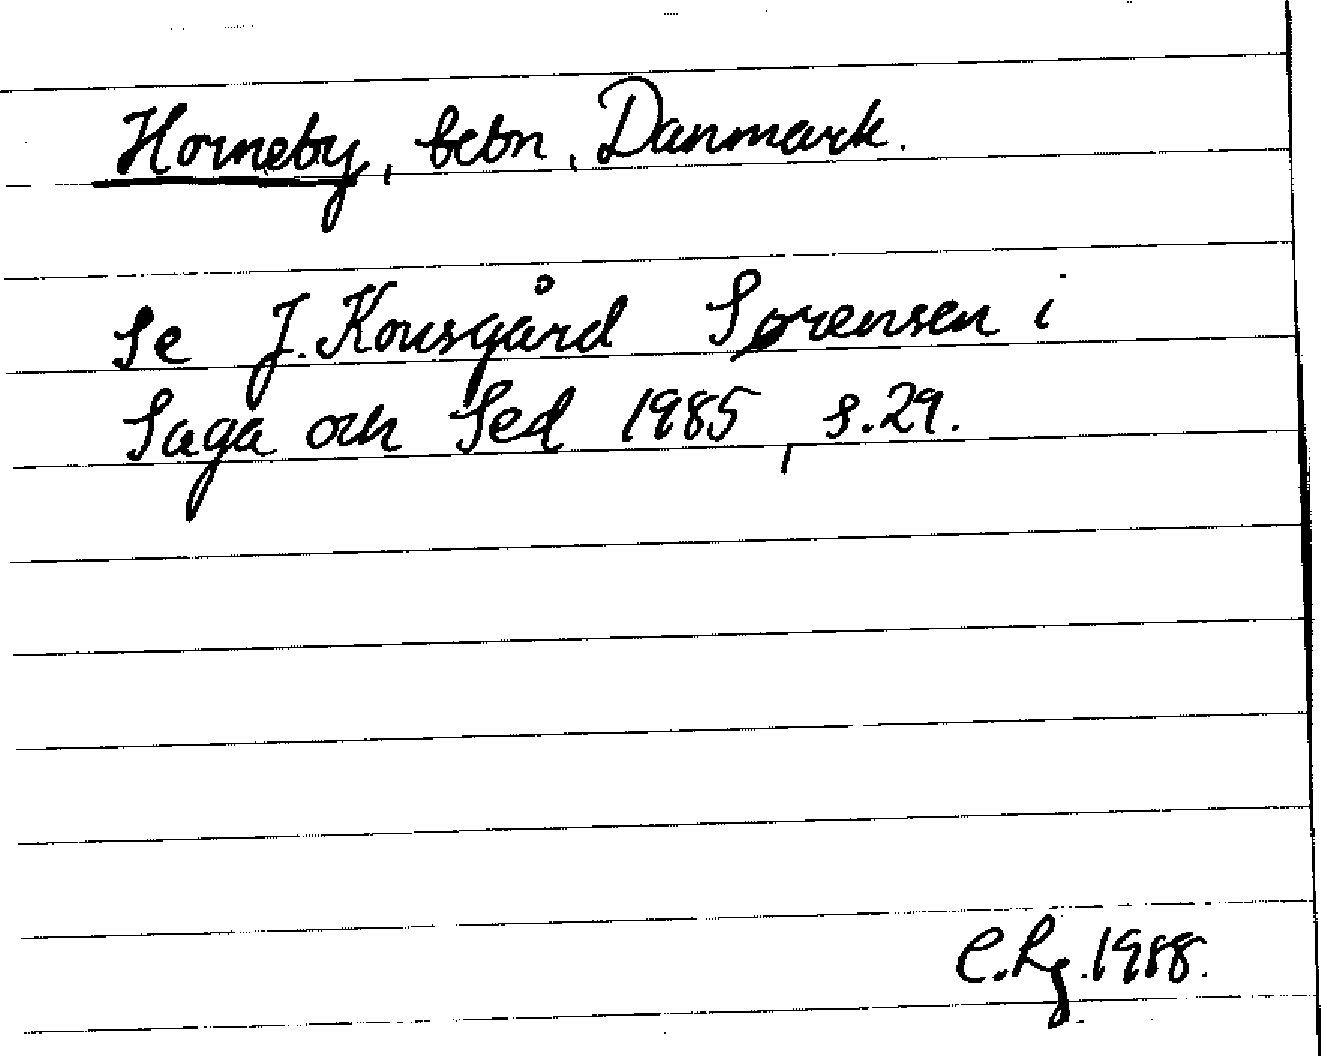 Horneby, bebn, Danmark.
Se J. Kousgård Sørensen i
Saga och Sed 1985, s. 29.
C. Rg. 1988.